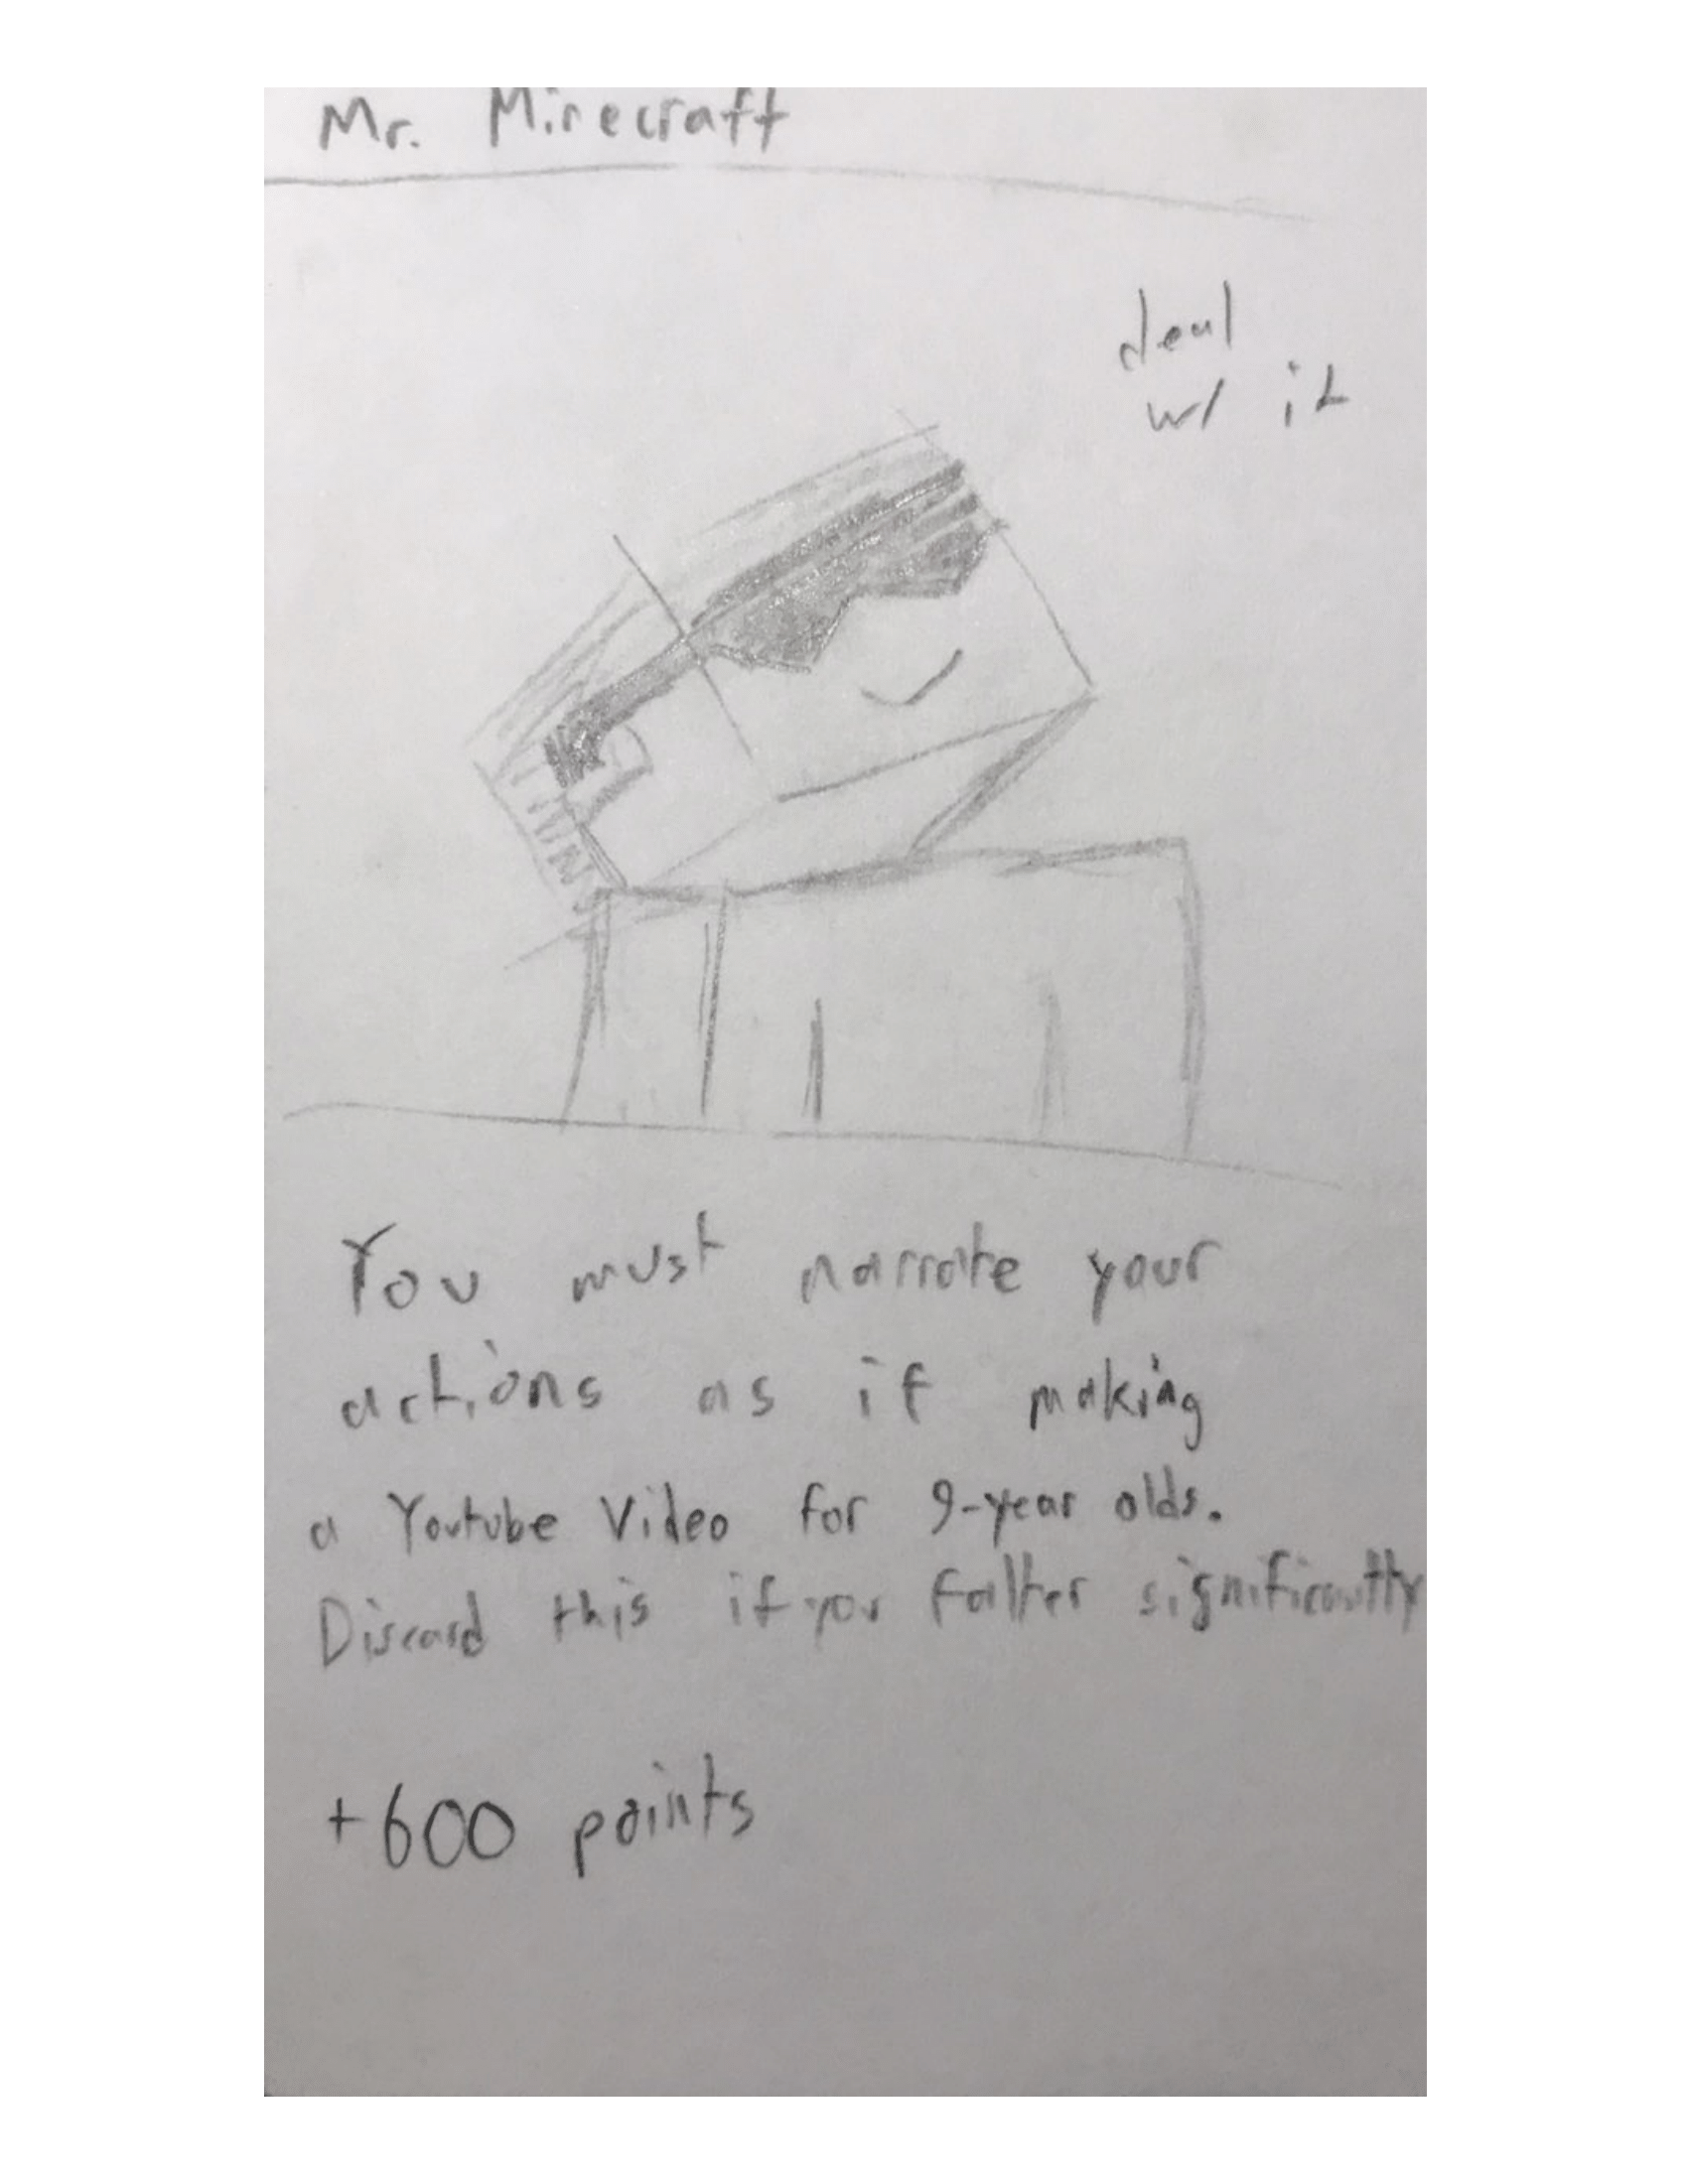 Mr. Minecraft
deal
w/ it
You must narrate your
actions as if making
a Youtube Video for 9-year olds.
Discard this if you falter significantly
+600 points